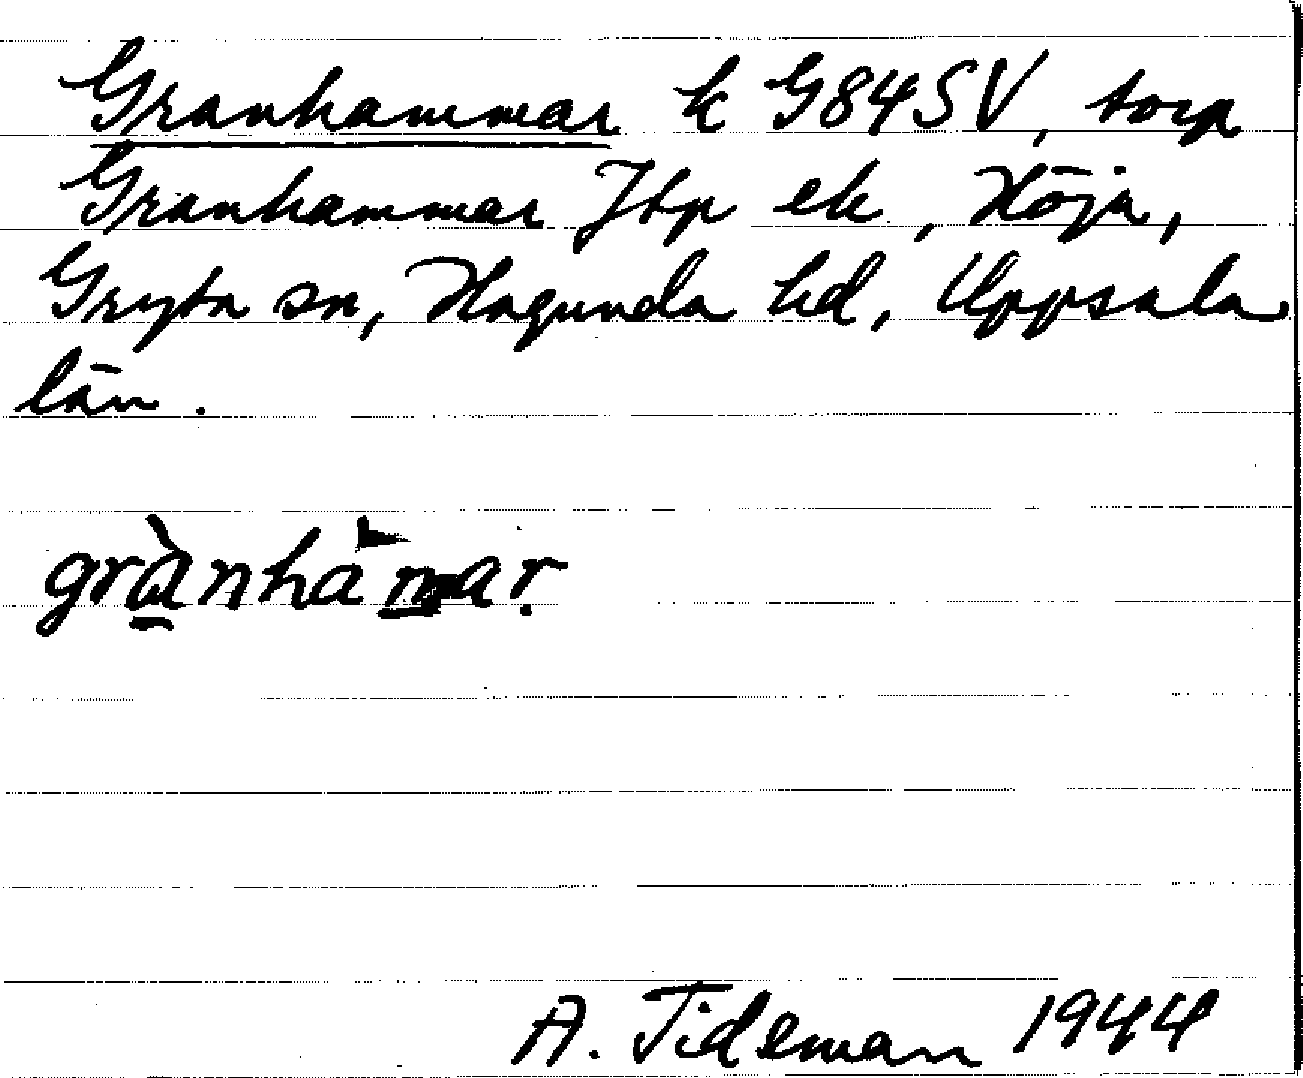 Granhammar k G84SV, torp
Granhammar Jbp ek, Höja,
Gryta sn, Hagunda hd, Uppsala
län.
grànhàmar.
A. Tideman 1944